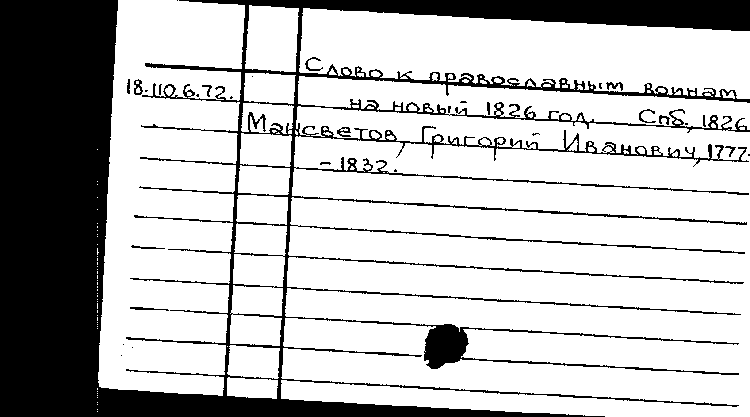 Слово к православным воинам
18.110.6.72.
на новый 1826 год. Спб., 1826
Мансветов, Григорий Иванович, 1777-
-1832.